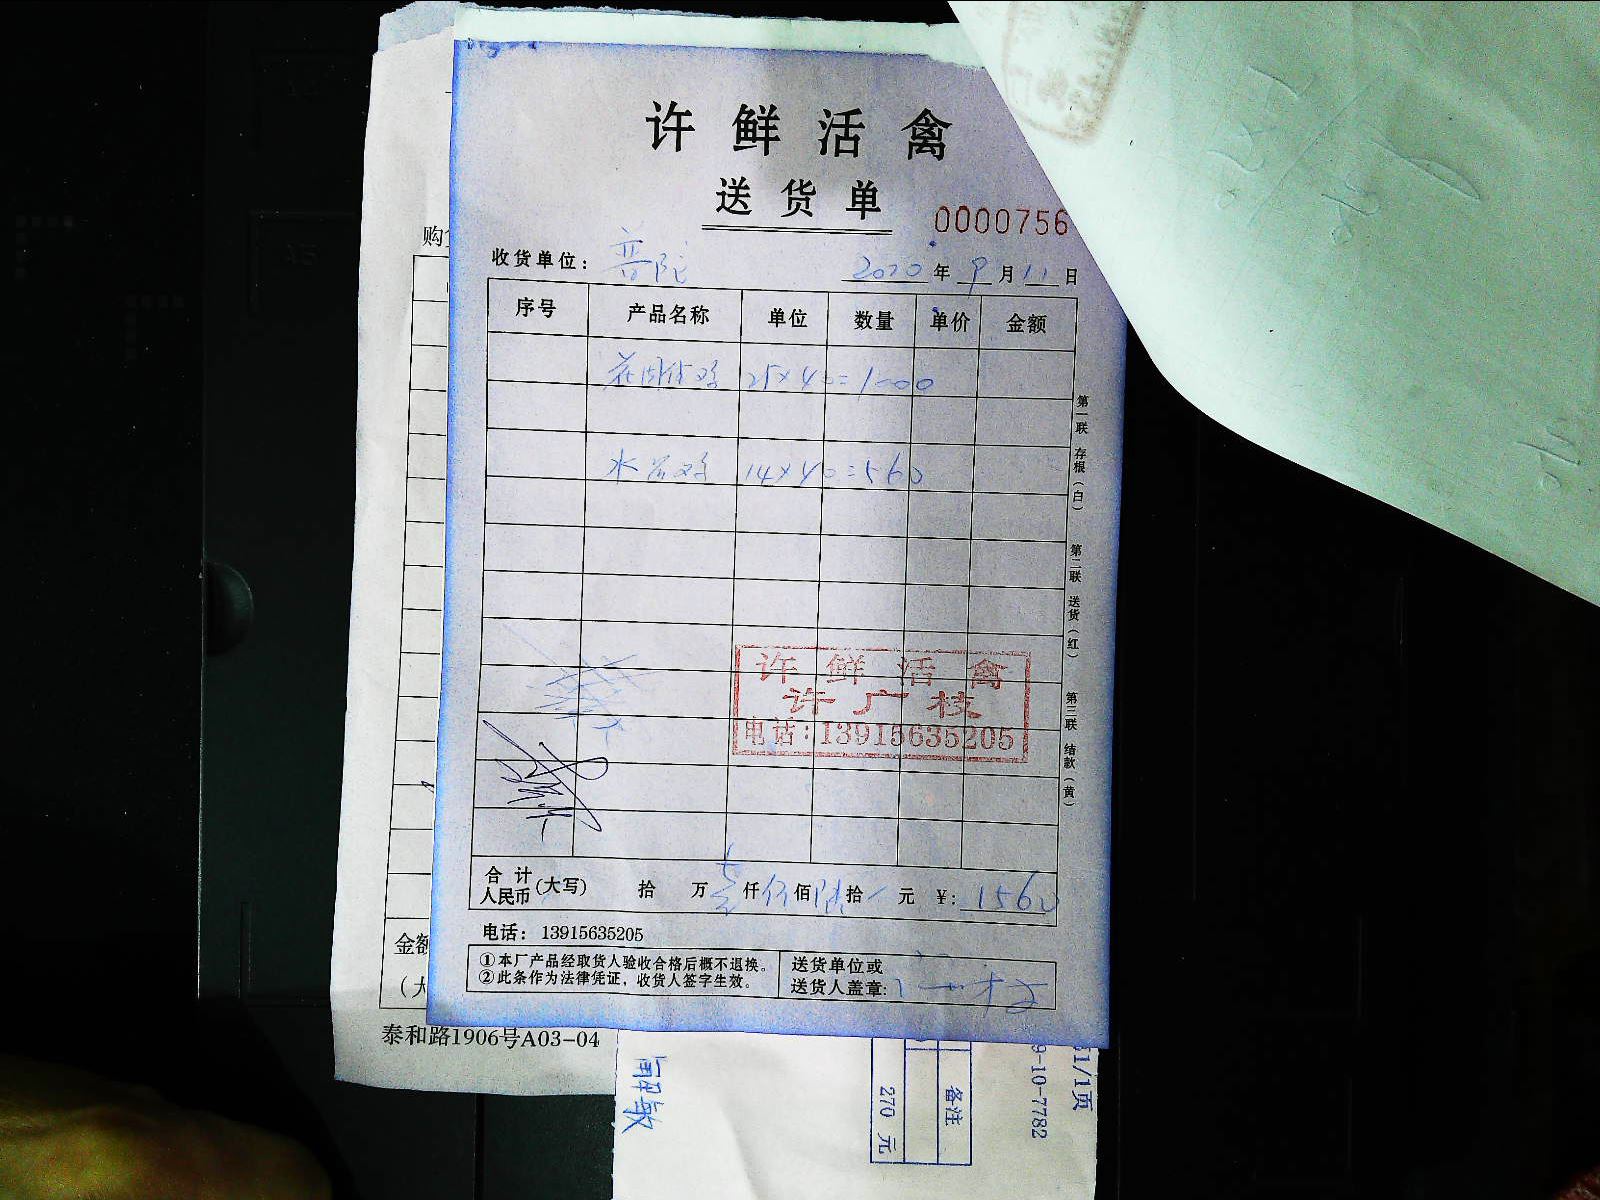 许鲜活禽
送货单
0000756
收货单位：普陀 2020年9月11日
序号 产品名称 单位 数量 单价 金额
25×40=1000
14×40=560
第一联 存根（白） 第二联 送货（红） 第三联 结款（黄）
许鲜活禽
许广枝
电话：13915635205
合计人民币（大写） 拾 万 壹仟伍佰陆拾 元 ¥：1560
电话：13915635205
①本厂产品经取货人验收合格后概不退换。
②此条作为法律凭证，收货人签字生效。
送货单位或
送货人盖章：
购
金额
（大
泰和路1906号A03-04
1/1页
9-10-7782
备注
270 元